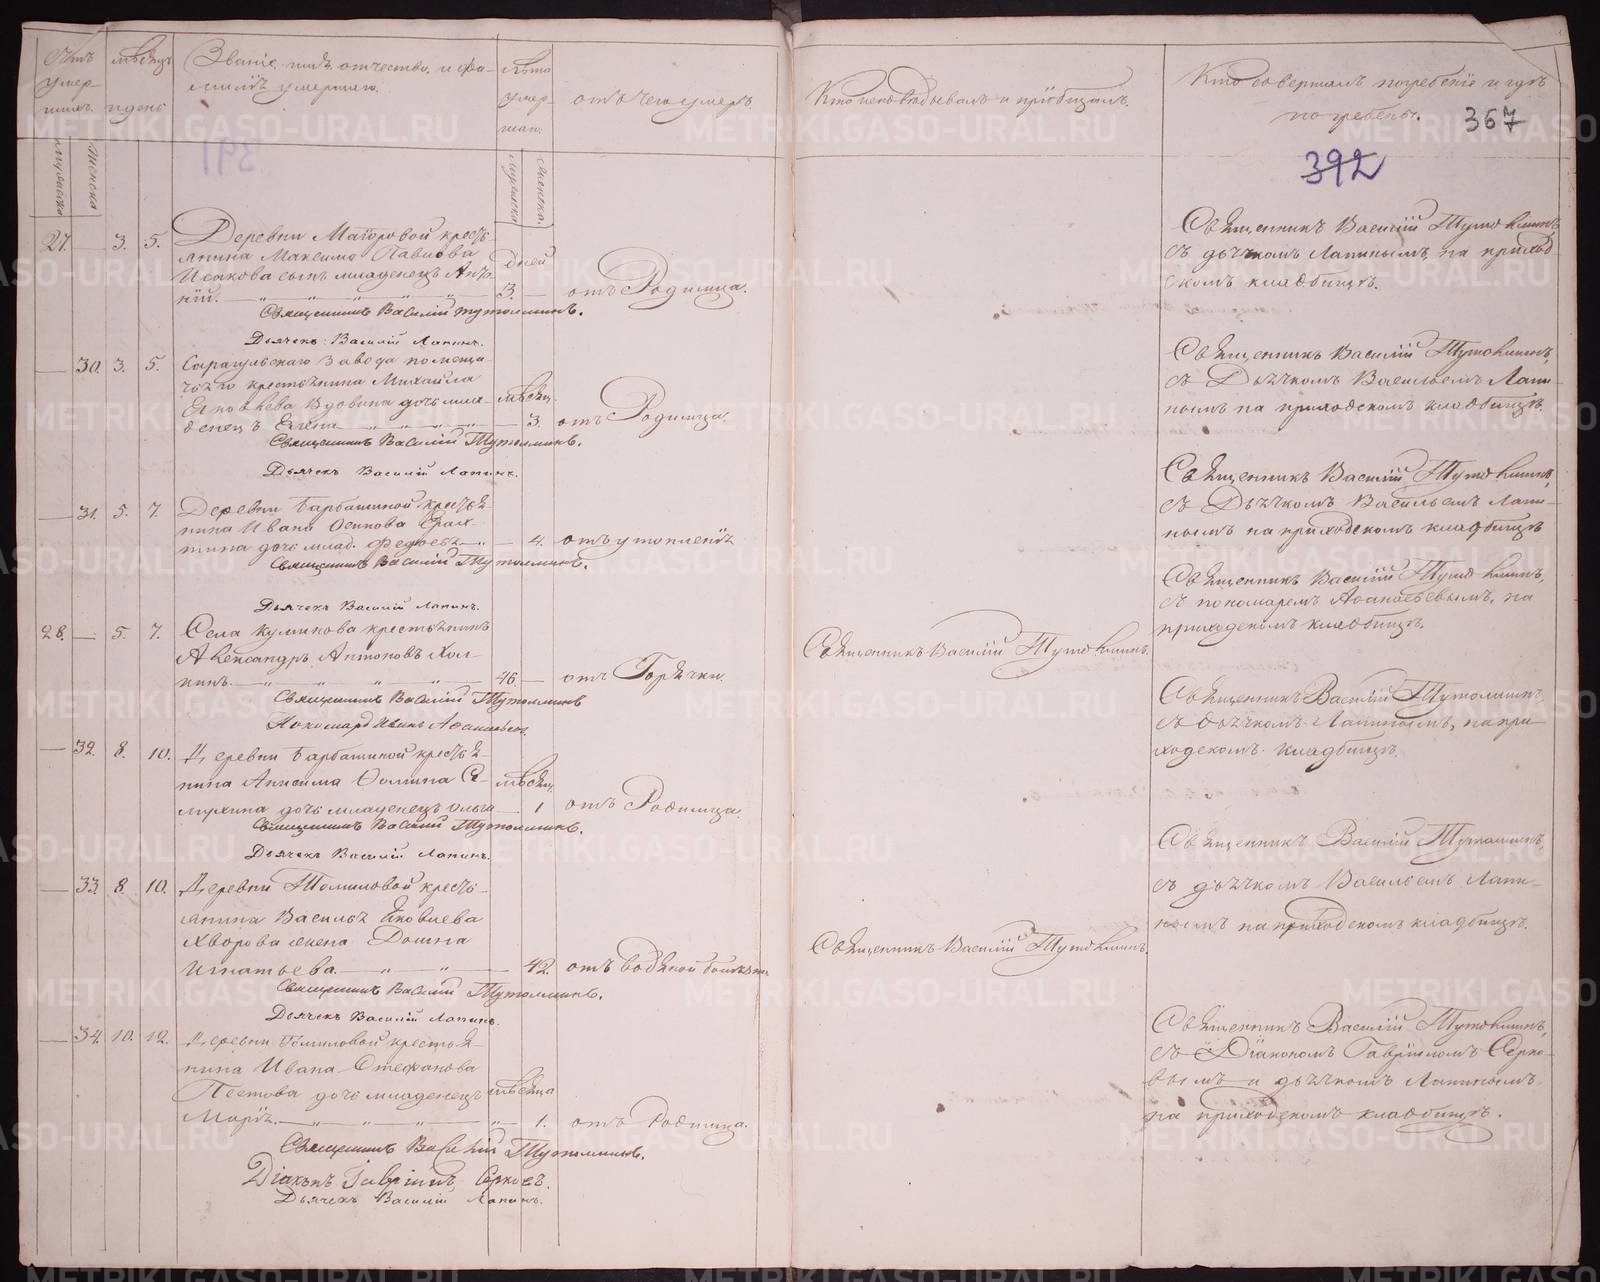 Счетъ умер-
шихъ.
мѣсяцъ
и день
Званіе, имя, отчество, и фа-
милія умершаго.
лѣта
умер-
шаго.
отъ чего умеръ
Кто исповѣдывалъ и пріобщалъ.
Кто совершалъ погребеніе и гдѣ
погребены.
367
392
мужеска
женска
мужеска
женска.
27. — 3. 5. Деревни Маіоровой кресть-
янина Максима Павлова
сынъ младенецъ
дней
3. — отъ Родимца.
Священникъ Василій Тутолминъ.
Дьячекъ Василій Лапинъ.
Священникъ Василій Тутолминъ
съ дьячкомъ Лапинымъ, на приход-
скомъ кладбищѣ.
— 30. 3. 5. Сарапульскаго Завода помѣщи-
чьяго крестьянина Михайла
Яковлева Вдовина дочь мла-
денецъ Елена
мѣсяц.
— 3. отъ Родимца.
Священникъ Василій Тутолминъ.
Дьячекъ Василій Лапинъ.
Священникъ Василій Тутолминъ,
съ Дьячкомъ Васильемъ Лапи-
нымъ на приходскомъ кладбищѣ.
— 31. 5. 7. Деревни Барбашиной крестья-
нина Ивана Осипова
дочь млад. Федосья
— 4. отъ утопленія
Священникъ Василій Тутолминъ.
Дьячекъ Василій Лапинъ.
Священникъ Василій Тутолминъ,
съ Дьячкомъ Васильемъ Лапи-
нымъ на приходскомъ кладбищѣ
28. — 5. 7. Села Куликова крестьянинъ
Александръ Антоновъ Хол-
кинъ.
46. — отъ Горячки.
Священникъ Василій Тутолминъ
Пономарь Иванъ Афанасьевъ.
Священникъ Василій Тутолминъ.
Священникъ Василій Тутолминъ,
съ пономаремъ Афанасьевымъ, на
приходскомъ кладбищѣ.
— 32. 8. 10. Деревни Барбашиной крестья-
нина Анисима Фомина Се-
мухина дочь младенецъ Ольга
мѣсяц.
— 1. отъ Родимца.
Священникъ Василій Тутолминъ.
Дьячекъ Василій Лапинъ.
Священникъ Василій Тутолминъ,
съ дьячкомъ Лапинымъ, на при-
ходскомъ кладбищѣ.
— 33. 8. 10. Деревни Томиловой кресть-
янина Василья Яковлева
Хворова жена Домна
Игнатьева.
— 42. отъ водяной болѣзни
Священникъ Василій Тутолминъ.
Дьячекъ Василій Лапинъ.
Священникъ Василій Тутолминъ.
Священникъ Василій Тутолминъ,
съ дьячкомъ Васильемъ Лапи-
нымъ на приходскомъ кладбищѣ.
— 34. 10. 12. Деревни Томиловой крестья-
нина Ивана Стефанова
Пестова дочь младенецъ
Марія.
мѣсяца
— 1. отъ Родимца.
Священникъ Василій Тутолминъ.
Діаконъ Гавріилъ Серковъ.
Дьячекъ Василій Лапинъ.
Священникъ Василій Тутолминъ,
съ Діакономъ Гавріиломъ Серко-
вымъ и дьячкомъ Лапинымъ.
на приходскомъ кладбищѣ.
METRIKI.GASO-URAL.RU